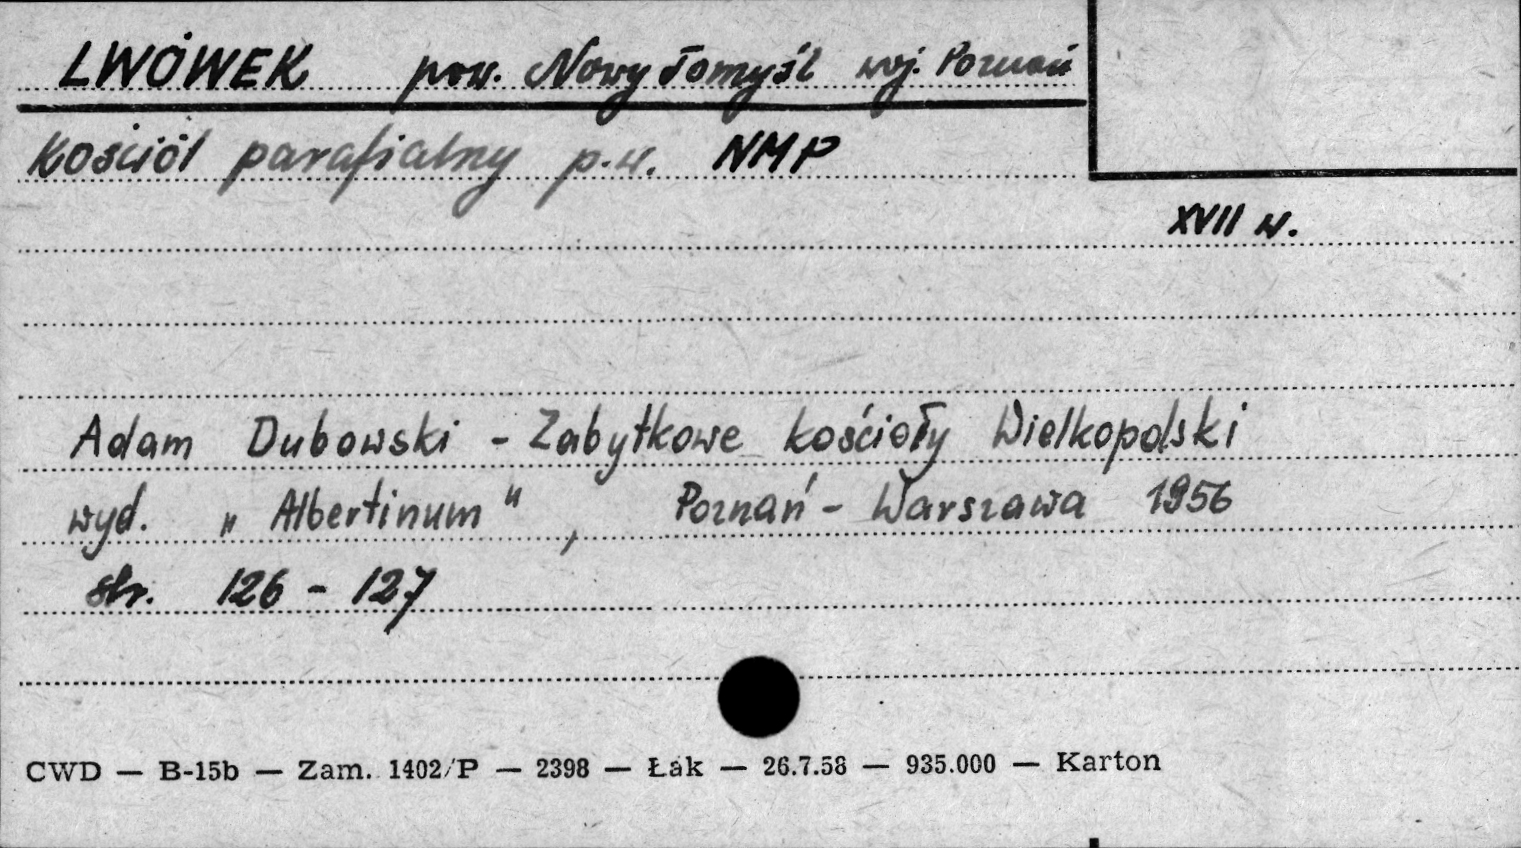 LWÓWEK pow. Nowy Tomyśl woj. Poznań
Kościół parafialny p.w. NMP
XVII w.
Adam Dubowski - Zabytkowe kościoły Wielkopolski
wyd. „Albertinum", Poznań - Warszawa 1956
str. 126 - 127
CWD — B-15b — Zam. 1402/P — 2398 — Łak — 26.7.58 — 935.000 — Karton